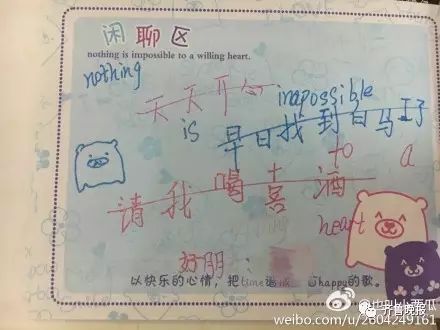 闲聊区
nothing is impossible to a willing heart.
nothing
天天开心 impossible
is 早日找到白马王子
to a
请我喝喜酒
heart
好朋
以快乐的心情，把time
happy的歌。
齐鲁晚报
weibo.com/u/2604249161